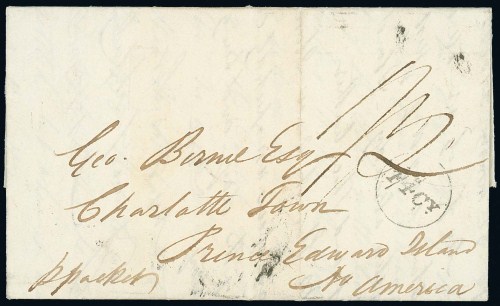 Geo. Birnie Esq
Charlotte Town
Prince Edward Island
p packet No America